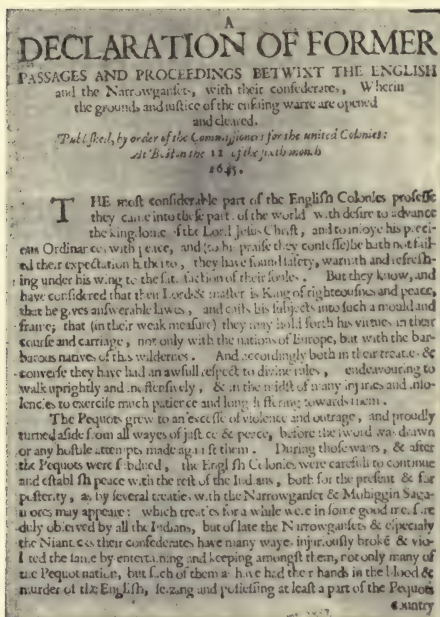 A
DECLARATION OF FORMER
PASSAGES AND PROCEEDINGS BETWIXT THE ENGLISH
and the Narrowgansets, with their confederates, Wherin
the grounds and iustice of the ensuing warre are opened
and cleared.
Published, by order of the Commissioners for the united Colonies:
At Boston the 11 of the sixth month
1645.
THE most considerable part of the English Colonies professe
they came into these parts of the world with desire to advance
the kingdome of the Lord Jesus Christ, and to injoye his preci-
ous Ordinances with peace, and (to his praise they confesse) he hath not fail-
ed their expectation hitherto, they have found safety, warmth and refresh-
ing under his wing to the satisfaction of their soules. But they know, and
have considered that their Lord & master is King of righteousnes and peace,
that he gives answerable lawes, and casts his subjects into such a mould and
frame; that (in their weak measure) they may hold forth his virtues in their
course and carriage, not only with the nations of Europe, but with the bar-
barous natives of this wildernes. And accordingly both in their treaties &
converse they have had an awfull respect to divine rules, endeavouring to
walk uprightly and inoffensively, & in the midst of many injuries and inso-
lencies to exercise much patience and long suffering towards them.
The Pequots grew to an excesse of violence and outrage, and proudly
turned aside from all wayes of justice & peace, before the sword was drawn
or any hostile attempts made against them. During those warrs, & after
the Pequots were subdued, the English Colonies were carefull to continue
and establish peace with the rest of the Indians, both for the present & for
posterity, as by severall treaties with the Narrowganset & Mohiggin Saga-
mores may appeare: which treaties for a while were in some good measure
duly observed by all the Indians, but of late the Narrowgansets & especialy
the Nianticks their confederates have many wayes injuriously broken & vio-
lated the same by entertaining and keeping amongst them, not only many of
the Pequot nation, but such of them as have had their hands in the blood &
murder of the English, seizing and possessing at least a part of the Pequots
Country